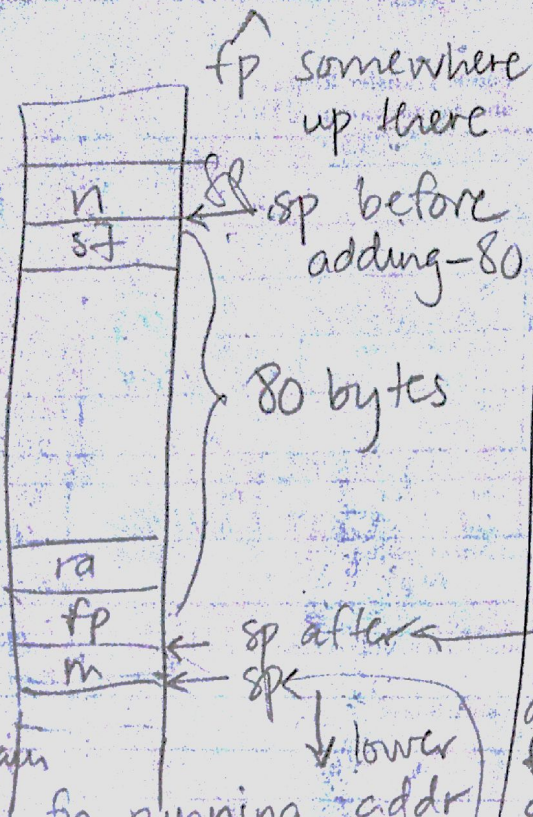 fp somewhere
up there
n
sp
sp before
adding -80
s7
80 bytes
ra
fp
sp after
m
sp
lower
addr
running